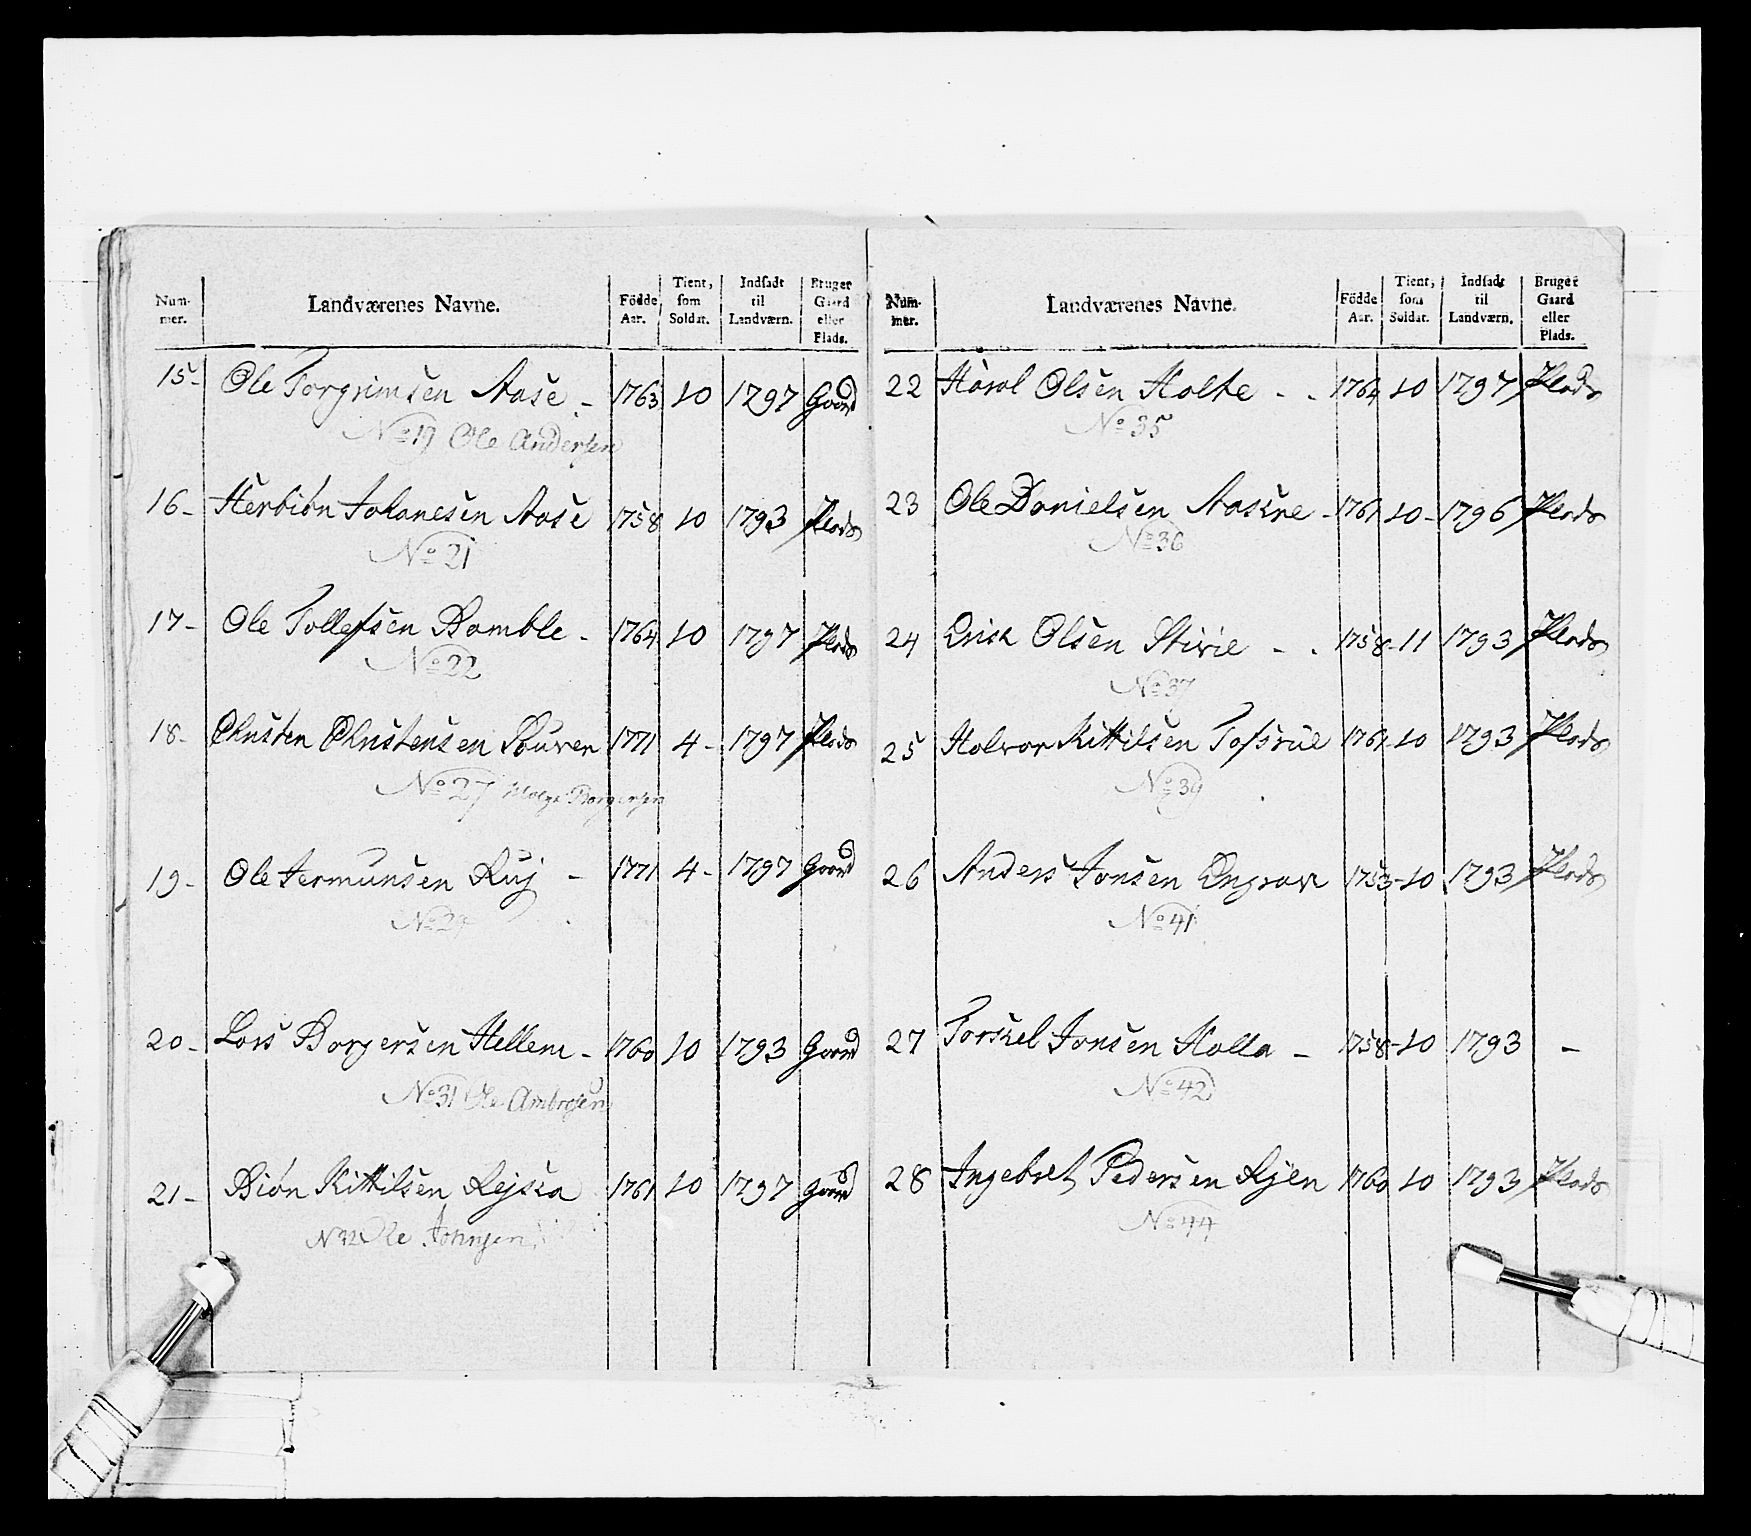 Num-mer. Landværenes Navne. Födde Aar. Tient, som Soldat. Indsadt til Landværn. Bruger Gaard eller Plads.
15- Ole Torgrimsen Aase - 1763 10 1797 Gaard
No 19 Ole Andersen
16- Herbiön Johanesen Aase 1758 10 1793 Plads
No 21
17- Ole Tollefsen Bamble - 1764 10 1797 Plads
No 22
18- Christen Christensen 1771 4- 1797 Plads
No 27
19- Ole Jermunsen Ruj - 1771 4- 1797 Gaard
20- Lars Borgersen Hellem - 1760 10 1793 Gaard
No 31 Ole Ambrosen
21- Biön Kittilsen Rejsza 1761 10 1797 Gaard
Ole Johnsen
Num-mer. Landværenes Navne. Födde Aar. Tient, som Soldat. Indsadt til Landværn. Bruger Gaard eller Plads.
22 Harol Olsen Holte - - 1764 10 1797 Plads
No 35
23 Ole Danielsen - 10- 1796 Plads
No 36
24 Erick Olsen Stivie - - 1758-11 1793 Plads
No 37
25 Halvor Kittilsen 10 1793 Plads
No 39
26 Anders Jonsen Engrav 1753-10 1793 Plads
No 41
27 Torskel Jonsen Holla - 1758-10 1793 -
No 42
28 Ingebret Pedersen 1760 10 1793 Plads
No 44